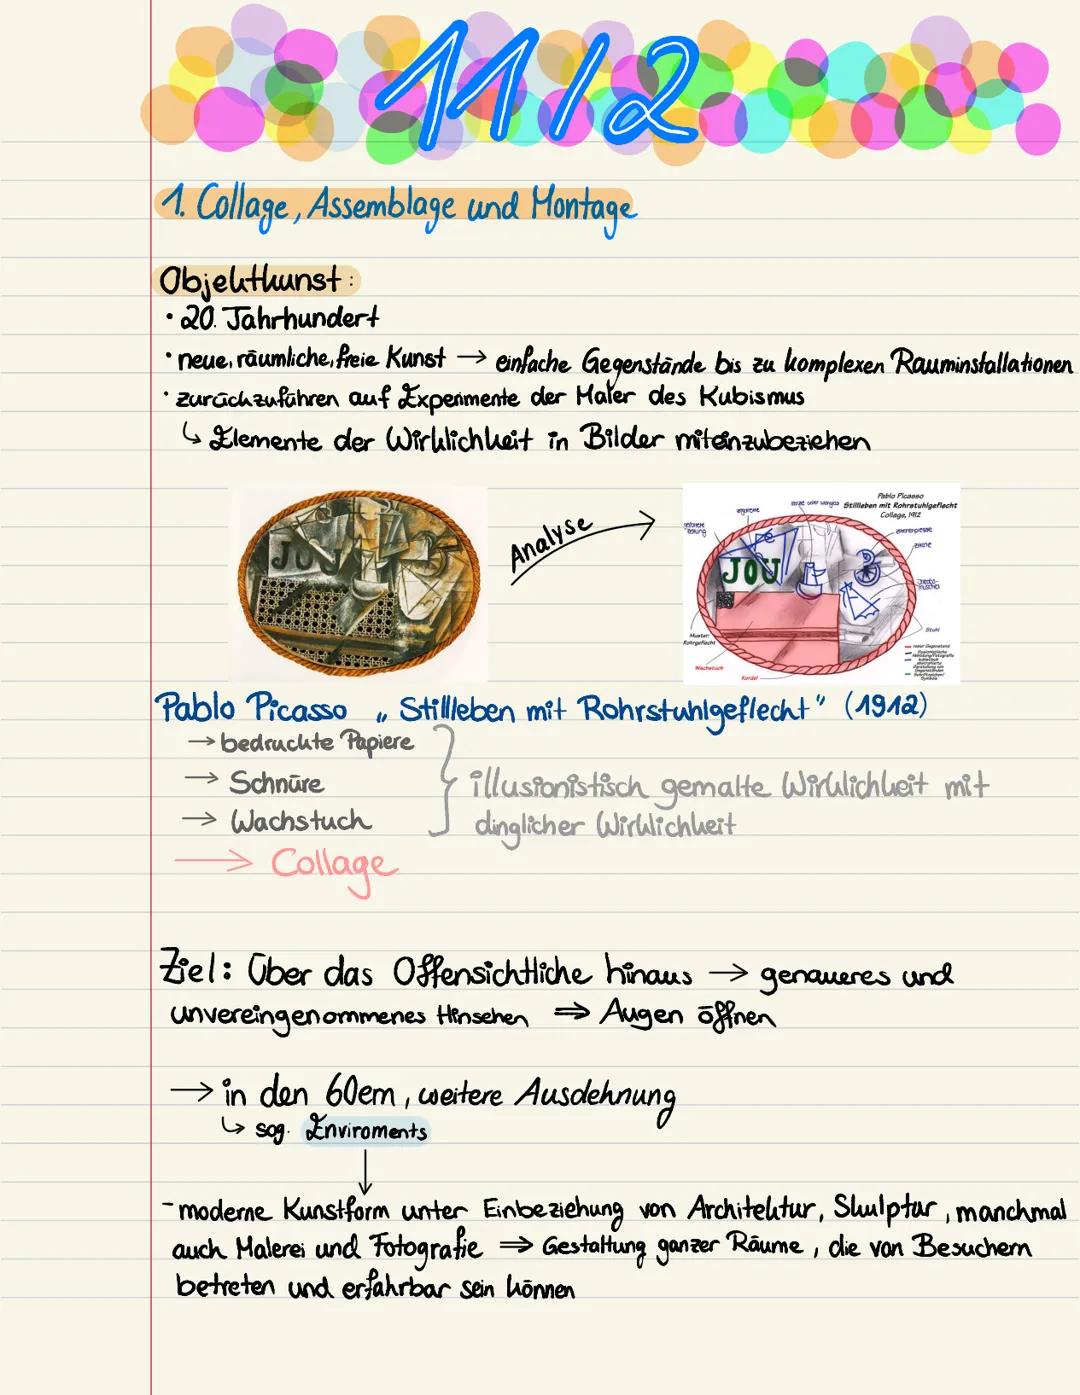 11/2
1. Collage, Assemblage und Montage
Objektkunst:
• 20. Jahrhundert
• neue, räumliche, freie Kunst → einfache Gegenstände bis zu komplexen Rauminstallationen
• zurückzuführen auf Experimente der Maler des Kubismus
↳ Elemente der Wirklichkeit in Bilder miteinzubeziehen
JOU
Analyse
Pablo Picasso
Stillleben mit Rohrstuhlgeflecht
Collage, 1912
JOU
Zitrone
Stuhl
Muster:
Rohrgeflecht
Wachstuch
Kordel
Pablo Picasso „Stillleben mit Rohrstuhlgeflecht" (1912)
→ bedruckte Papiere
→ Schnüre
→ Wachstuch
illusionistisch gemalte Wirklichkeit mit
dinglicher Wirklichkeit
→ Collage
Ziel: Über das Offensichtliche hinaus → genaueres und
unvereingenommenes Hinsehen ⇒ Augen öffnen
→ in den 60ern, weitere Ausdehnung
↳ sog. Enviroments
- moderne Kunstform unter Einbeziehung von Architektur, Skulptur, manchmal
auch Malerei und Fotografie ⇒ Gestaltung ganzer Räume, die von Besuchern
betreten und erfahrbar sein können